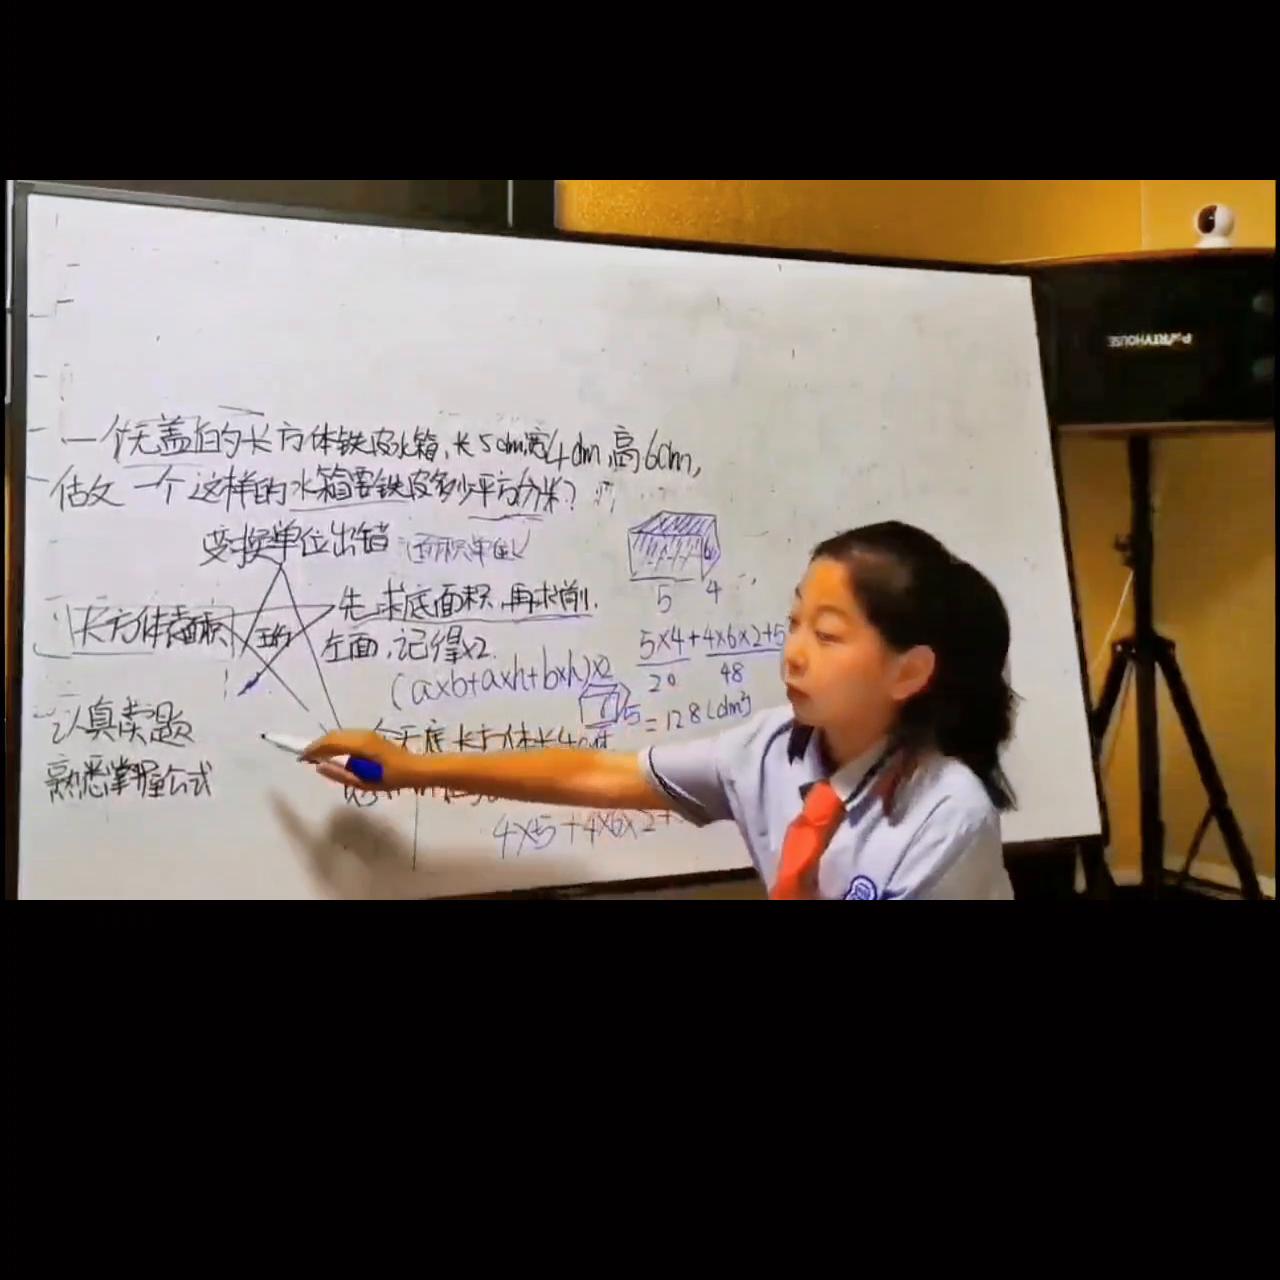 一个无盖的长方体铁皮水箱,长5dm,宽4dm,高6dm,
估文 一个这样的水箱要铁皮多少平方分米?
变换单位出错 面积单位
长方体表面积
先求底面积,再求前,
左面,记得x2
(axb+axh+bxh)x2
认真读题
熟悉掌握公式
6
5 4
5×4+4×6×2+5
20 48
=128(dm²)
5
个无底长方体长4
4×5+4×6×2+
PARTYHOUSE